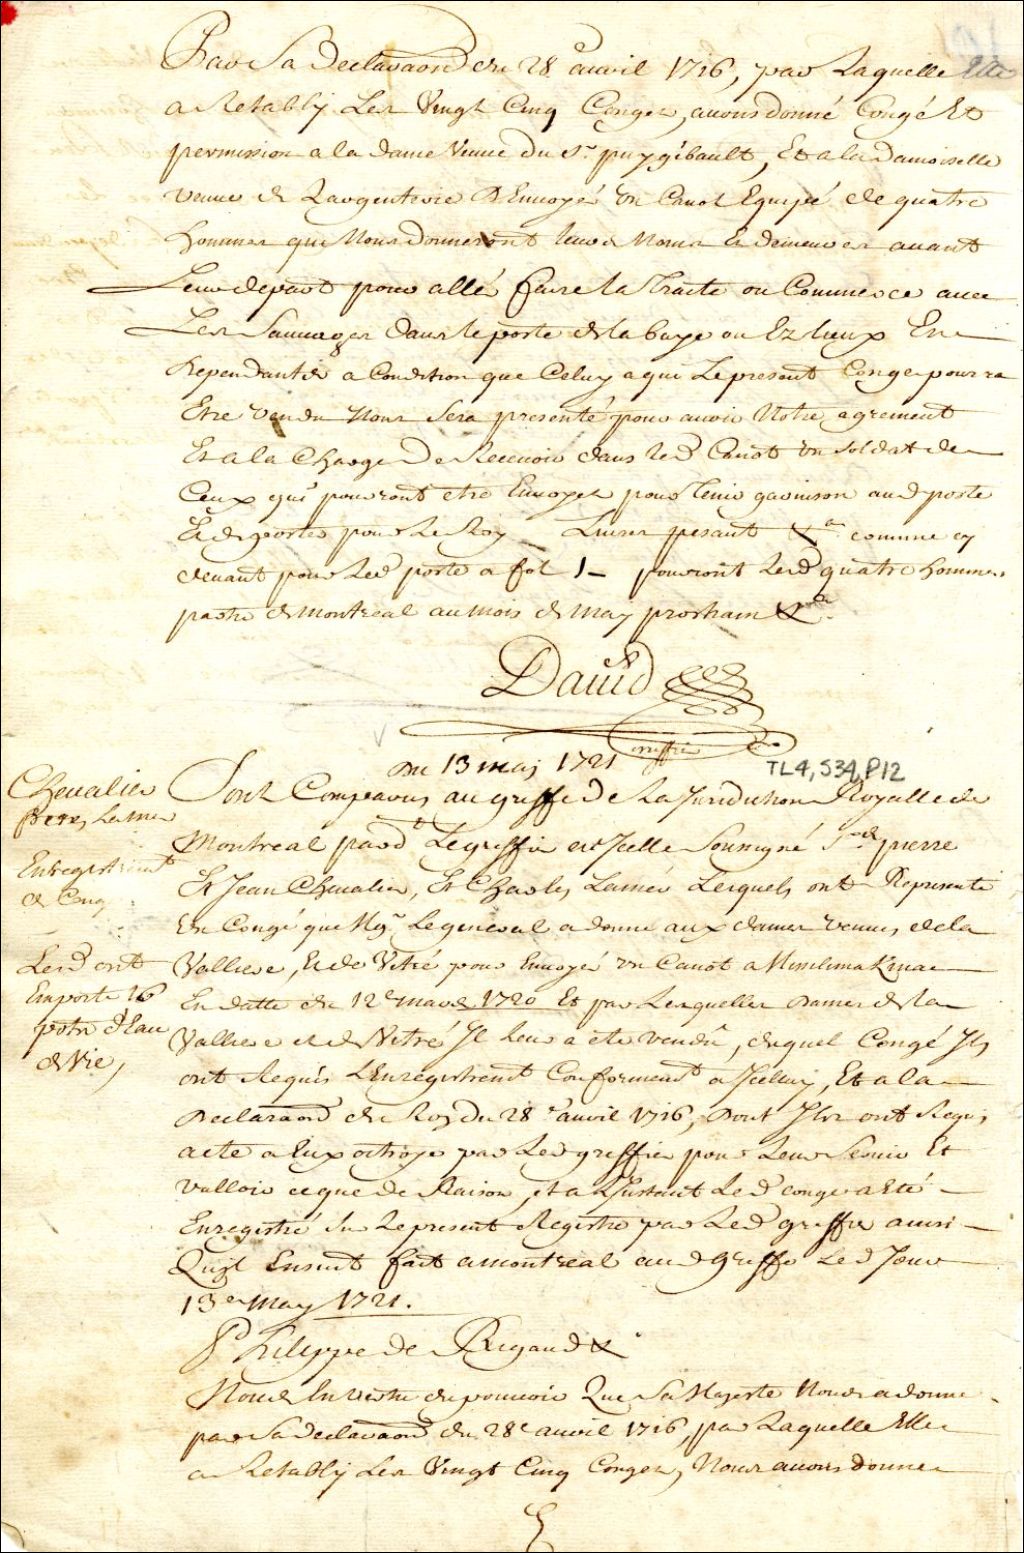 Par Sa Declaraõn du 28e. auril 1716, par Laquelle Elle
a Retably Les Vingt Cinq Congez, auons donné Congé Et
permission a la dame Veuue du Sr. puygibault, Et a la Damoiselle
veuue de Largenterie D'Enuoyé Un Canot Equipé de quatre
hommes qui Nous donneront leurs Noms & demeures auant
Leur depart pour allé faire la Traite ou Commerce auec
Les Sauuages dans le poste de la baye ou Ez lieux En
Dependants a Condition que Celuy a qui Le present Congé pourra
Etre Vendu Nous Sera presenté pour auoir Notre agrement
Et a la Charge De Receuoir dans led. Canot Un Soldat de
Ceux qui pourront etre Enuoyez pour tenir garnison aud. poste
Et de porter pour Le Roy Liures pesant &a. comme cy
deuant pour Led. poste a fol 1 pouront Lesd. quatre hommes
partir de Montreal au mois de May prochain &a.
Dauid
greffier
Du 13 may 1721
TL4, S34, P12
Cheualier
freres, Lamer
Enregistrement
de Congé
Lesd. ont
Emporté 16
pots d'Eau
de Vie,
Sont Comparus au greffe de La Jurisdiction Royalle de
Montreal pard. Le greffier en Icelle Soussigné Srs. pierre
Et Jean Cheualier, Et Charles Lamer Lesquels ont Representé
Un Congé que Mgr. Le general a donné aux dames veuues de la
Valliere, Et de Vitré pour Enuoyé un Canot a Missilimakinac
En datte du 12e mars 1720 Et par Lesquelles Dames de la
Valliere et de Vitré Il leur a eté vendu, duquel Congé Ils
ont Requis L'Enregistremt. Conformemt. a Iceluy, Et a la
Declaraõn du Roy du 28e. auril 1716, Dont Ils ont Requis
acte a Eux octroyé par Led. greffier pour Leur Seruir Et
Valloir ce que de Raison, et a L'Instant Led. congé a Eté
Enregistré Sur Le present Registre par Led. greffier ainsi
Quil Ensuit fait a Montreal aud. Greffe Led. Jour
13e may 1721.
Philippe de Rigaud &a.
Nous En Vertu du pouuoir Que Sa Majesté Nous a donné
par Sa declaraõn du 28e auril 1716, par Laquelle Elle
a Retably Les Vingt Cinq Congez, Nous auons donné